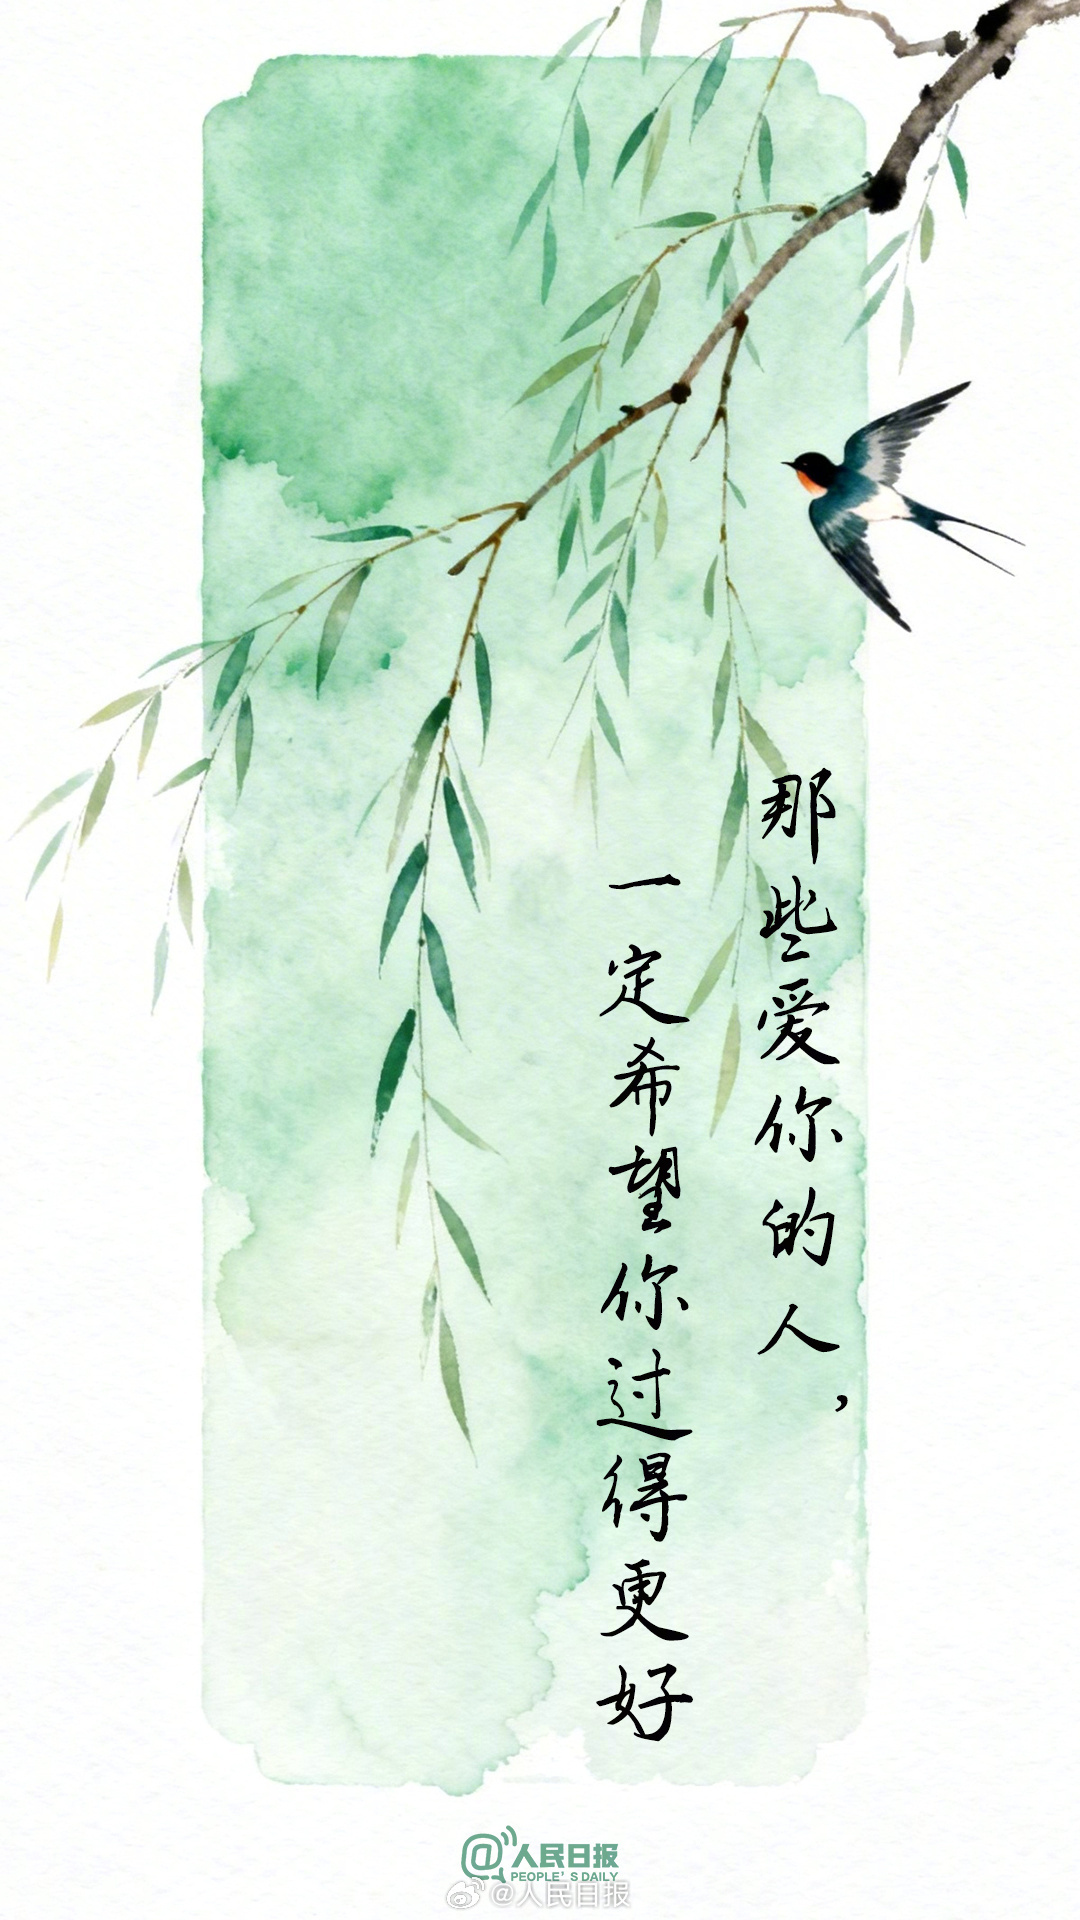 那些爱你的人，
一定希望你过得更好
@人民日报
PEOPLE'S DAILY
@人民日报